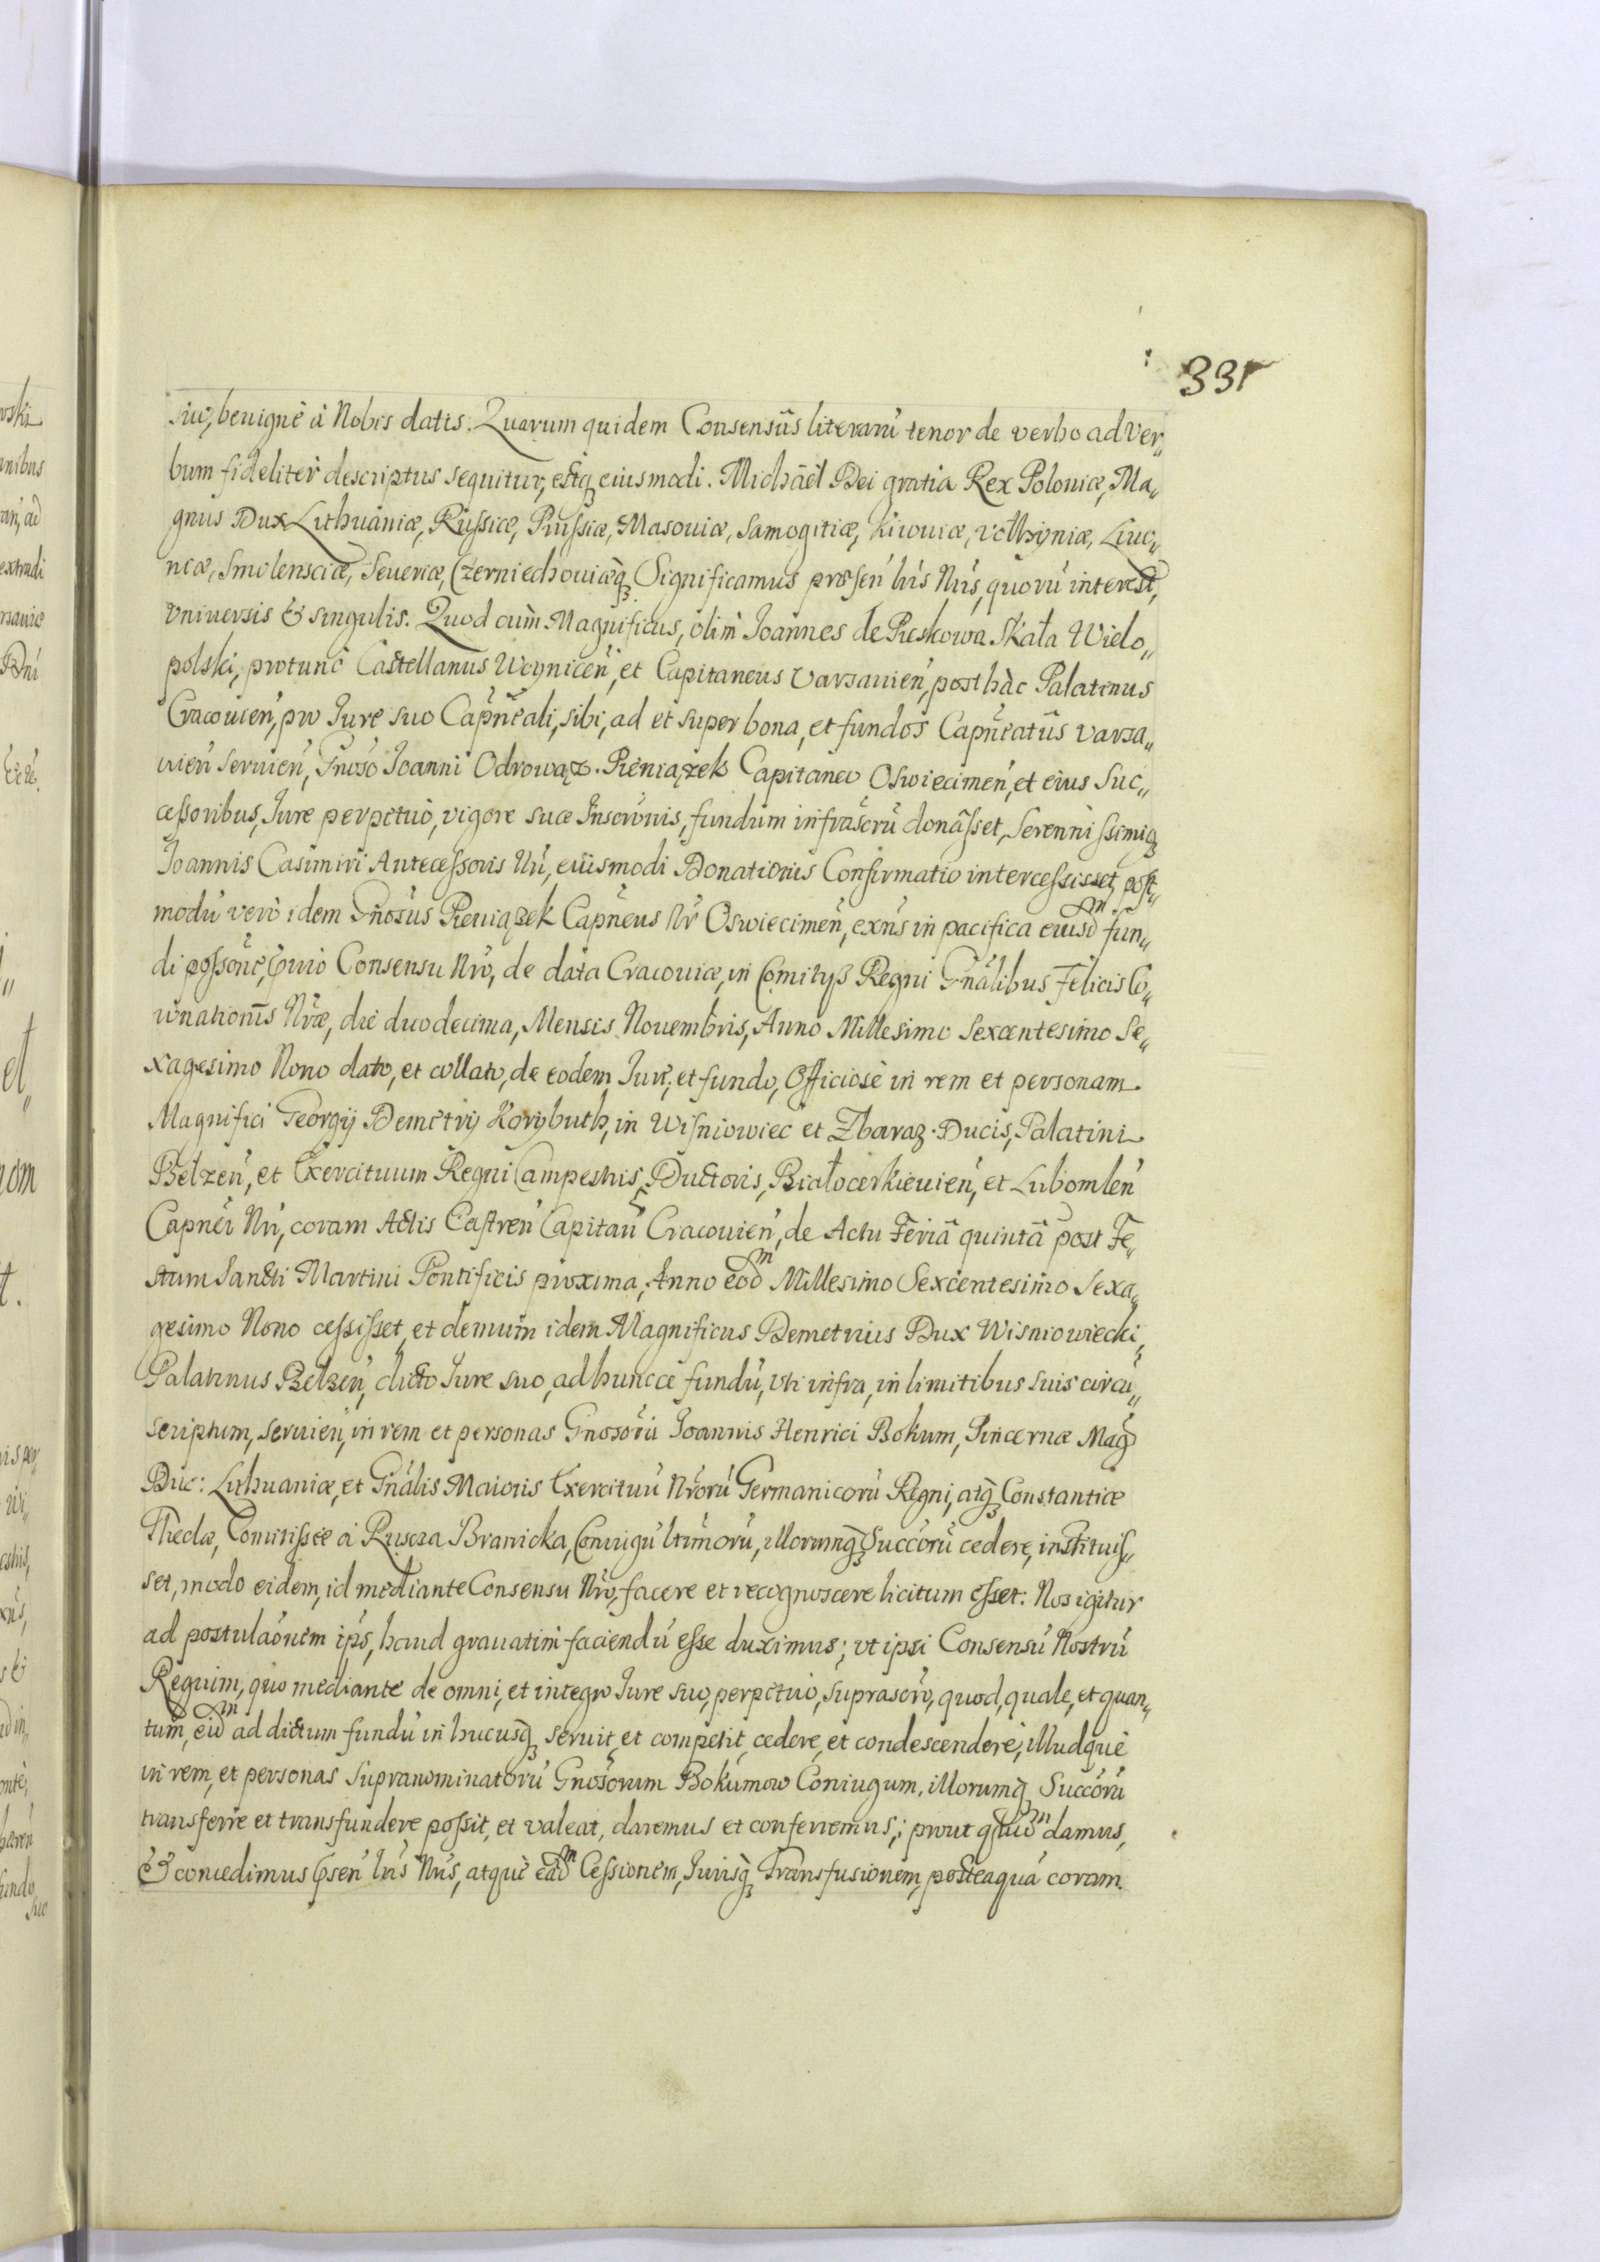 331
suo, benignè à Nobis datis. Quarum quidem Consensûs literarũ tenor de verbo ad Ver„
bum fideliter descriptus sequitur, estq̃ eiusmodi. Michaël Dei gratia Rex Poloniæ, Ma„
gnus Dux Lithuaniæ, Russiæ, Prussiæ, Masouiæ, Samogitiæ, Kiiouiæ, Volhyniæ, Liuo„
niæ, Smolensciæ, Seueriæ, Czerniechouiæq̃ Significamus præsen̄ lr̃is Nr̃is, quorũ interest,
Vniuersis & singulis. Quod cùm Magnificus, olim Joannes de Pieskowa Skała Wielo„
polski, protunc Castellanus Woynicen̄, et Capitaneus Varsauien̄, posthàc Palatinus
Cracouien̄, pro Jure suo Capñeali, sibi, ad et super bona, et fundos Capñeatûs Varsa„
uien̄ seruien̄, Gñoso Joanni Odrowąz Pieniązek Capitaneo Oswiecimen̄, et eius Suc„
cessoribus, Jure perpetuò, vigore suæ Inscr̃onis, fundum infrascrũ donâsset, Serennissimiq̃
Joannis Casimiri Antecessoris Nr̃i, eiusmodi Donationis Confirmatio intercessisset, post„
modũ verò idem Gñosus Pieniązek Capñeus Nr̃ Oswiecimen̄, exñs in pacifica eiusdm fun„
di possoñe, p̃uio Consensu Nr̃o, de data Cracouiæ, in Comitijs Regni Gñalibus Felicis Co„
ronationis Nr̃æ, die duodecima, Mensis Nouembris, Anno Millesimo Sexcentesimo Se„
xagesimo Nono dato, et collato, de eodem Jure, et fundo, Officiosè in rem et personam
Magnifici Georgij Demetrij Korybuth, in Wisniowiec et Zbaraz Ducis, Palatini
Belzen̄, et Exercituum Regni Campestris Ductoris, Białocerkieuien̄, et Lubomlen̄
Capñei Nr̃i, coram Actis Castren̄ Capitan̄ Cracouien̄, de Actu Feriâ quintâ post Fe„
stum Sancti Martini Pontificis proxima, Anno eodm Millesimo Sexcentesimo Sexa„
gesimo Nono cessisset, et demum idem Magnificus Demetrius Dux Wisniowiecki,
Palatinus Belzen̄, dicto Jure suo, ad huncce fundũ, vti infra, in limitibus suis circũ„
scriptum, seruien̄, in rem et personas Gnosorũ Joannis Henrici Bokum, Pincernæ Mag
Duc: Lithuaniæ, et Gñalis Maioris Exercituũ Nr̃orũ Germanicorũ Regni, atq̃ Constantiæ
Theclæ, Comitissæ à Ruscza Branicka, Coniugũ ltimorũ, illorumq̃ Succorũ cedere, instituis„
set, modo eidem, id mediante Consensu Nr̃o, facere et recognoscere licitum esset: Nos igitur
ad postulaõnem ips̃, haud grauatim faciendũ esse duximus; vt ipsi Consensũ Nostrũ
Regium, quo mediante de omni, et integro Jure suo, perpetuo, suprascr̃o, quod, quale, et quan„
tum, eidm ad dictum fundũ in hucusq̃ seruit, et competit, cedere, et condescendere, illudquè
in rem, et personas Supranominatorũ Gñosorum Bokumow Coniugum, illorumq̃ Succorũ
transferre et transfundere possit, et valeat, daremus et conferremus, prout quidm damus,
& concedimus p̃sen̄ lr̃is Nr̃is, atquè eadm Cessionem, Jurisq̃ Transfusionem, posteaquã coram